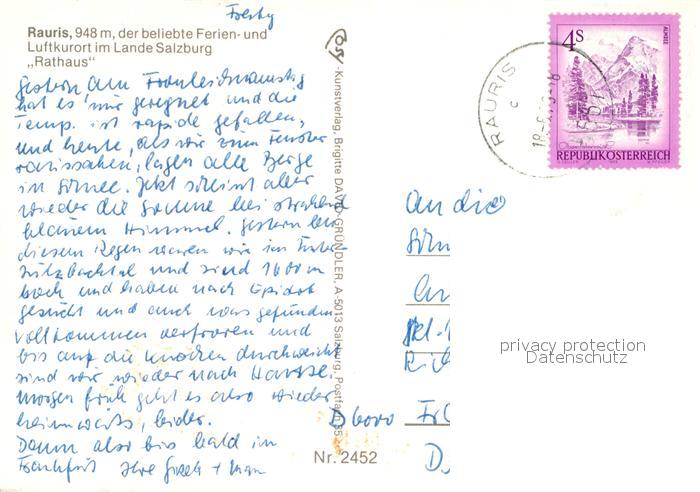 Freitag
Rauris, 948 m, der beliebte Ferien- und
Luftkurort im Lande Salzburg
„Rathaus“
Gestern am Fronleichnamstag
hat es nur geregnet und die
Temp. ist rapide gefallen,
und heute, als wir zum Fenster
raussahen, lagen alle Berge
in Schnee. Jetzt scheint aber
wieder die Sonne bei strahlend
blauem Himmel. Gestern bei
diesem Regen waren wir im
sulzbachtal und sind 1600 m
hoch und haben nach Epidot
gesucht und auch was gefunden
vollkommen verfroren und
bis auf die Knochen durchweicht
sind wir wieder nach Hause.
Morgen früh geht es also wieder
heimwärts, leider.
Dann also bis bald in
Frankfurt Ihre + Man
Cosy
Kunstverlag, Brigitte DAVID-GRÜNDLER, A-5013 Salzburg, Postfach 35
Nr. 2452
RAURIS
c
4 S
ALMSEE
REPUBLIK ÖSTERREICH
An die
D 6000
privacy protection
Datenschutz